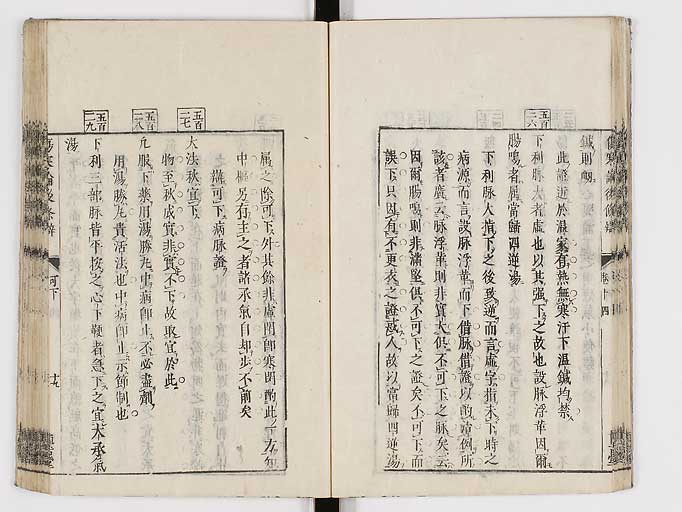 鍼則衂
此證近於溫家有熱無寒汗下溫鍼均禁
五百二六
下利脉大者虛也以其強下之故也設脉浮華因爾
腸鳴者屬當歸四逆湯
下利脉大指下之後致逆而言虛字指未下時之
病源而言設脉浮華而下借脉借證以
該者廣云脉浮華則非實大但不可下之脉矣云
因爾腸鳴則非滿堅但不可下之證矣不可下而
誤下只因有不更衣之證故以當歸四逆湯
屬之除可下外其餘非虛閉即寒
中樞另有主之者諸承氣自却步不前矣
辨可下病脉證
五百二七
大法秋宜下
物至秋成實非實不下故取宜於此
五百二八
凡服下藥用湯勝丸中病即止不必盡劑
用湯勝丸貴活法也中病即止示節制也
五百二九
下利三部脉皆平按之心下鞕者急下之宜大承氣
湯
卷十四
可下